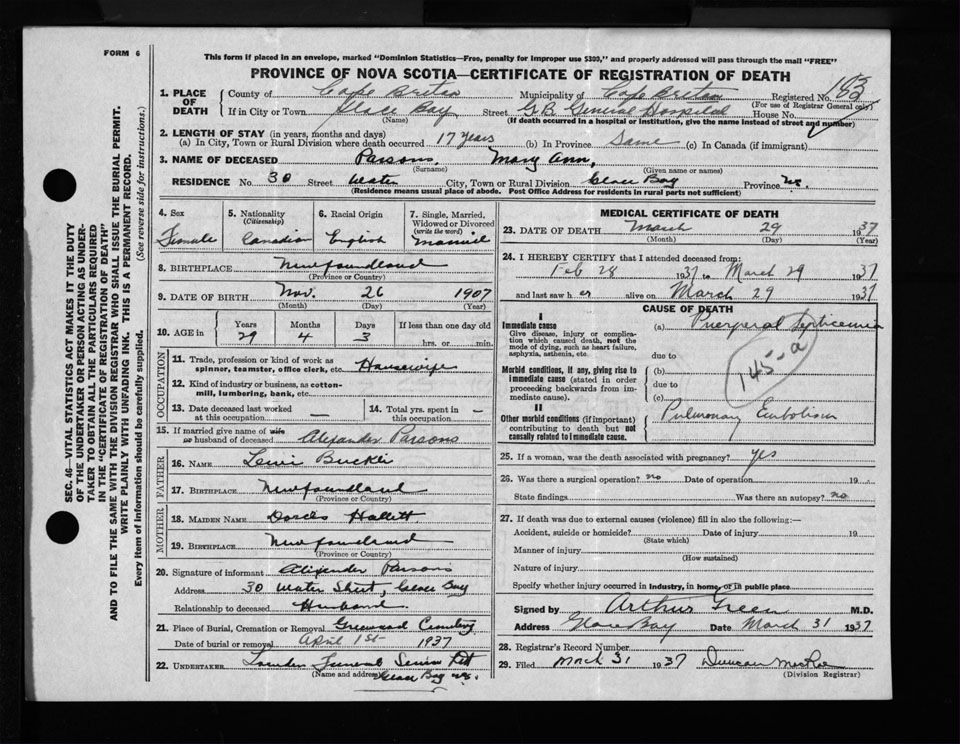 FORM 6
This form if placed in an envelope, marked "Dominion Statistics—Free, penalty for improper use $300," and properly addressed will pass through the mail "FREE"
PROVINCE OF NOVA SCOTIA—CERTIFICATE OF REGISTRATION OF DEATH
1. PLACE OF DEATH
County of Cape Breton Municipality of Cape Breton Registered No. 183
(For use of Registrar General only)
If in City or Town Glace Bay Street G.B. General Hospital House No.
(Name) (If death occurred in a hospital or institution, give the name instead of street and number)
2. LENGTH OF STAY (in years, months and days)
(a) In City, Town or Rural Division where death occurred 17 years (b) In Province Same (c) In Canada (if immigrant)
3. NAME OF DECEASED Parsons, Mary Ann,
(Surname) (Given name or names)
RESIDENCE No. 30 Street Water City, Town or Rural Division Glace Bay Province N.S.
(Residence means usual place of abode. Post Office Address for residents in rural parts not sufficient)
4. Sex Female
5. Nationality (Citizenship) Canadian
6. Racial Origin English
7. Single, Married, Widowed or Divorced (write the word) Married
8. BIRTHPLACE Newfoundland
(Province or Country)
9. DATE OF BIRTH Nov. 26 1907
(Month) (Day) (Year)
10. AGE in Years 29 Months 4 Days 3 If less than one day old hrs. or min.
OCCUPATION
11. Trade, profession or kind of work as spinner, teamster, office clerk, etc. Housewife
12. Kind of industry or business, as cotton-mill, lumbering, bank, etc.
13. Date deceased last worked at this occupation —
14. Total yrs. spent in this occupation —
15. If married give name of wife or husband of deceased Alexander Parsons
FATHER
16. NAME
17. BIRTHPLACE Newfoundland
(Province or Country)
MOTHER
18. MAIDEN NAME Dorcis Hallett
19. BIRTHPLACE Newfoundland
(Province or Country)
20. Signature of informant Alexander Parsons
Address 30 Water Street, Glace Bay
Relationship to deceased Husband
21. Place of Burial, Cremation or Removal Greenwood Cemetery
Date of burial or removal April 1st 1937
22. UNDERTAKER Funeral Service Ltd
(Name and address) Glace Bay N.S.
MEDICAL CERTIFICATE OF DEATH
23. DATE OF DEATH March 29 1937
(Month) (Day) (Year)
24. I HEREBY CERTIFY that I attended deceased from:
Feb 28 1937 to March 29 1937
and last saw her alive on March 29 1937
CAUSE OF DEATH
I
Immediate cause
Give disease, injury or complication which caused death, not the mode of dying, such as heart failure, asphyxia, asthenia, etc.
(a) Puerperal Septicemia
due to
Morbid conditions, if any, giving rise to immediate cause (stated in order proceeding backwards from immediate cause).
(b)
due to
(c)
145-a
II
Other morbid conditions (if important) contributing to death but not causally related to immediate cause.
Pulmonary Embolism
25. If a woman, was the death associated with pregnancy? yes
26. Was there a surgical operation? no Date of operation 19
State findings Was there an autopsy? no
27. If death was due to external causes (violence) fill in also the following:—
Accident, suicide or homicide? Date of injury 19
(State which)
Manner of injury
(How sustained)
Nature of injury
Specify whether injury occurred in industry, in home, or in public place
Signed by Arthur Green M.D.
Address Glace Bay Date March 31 1937
28. Registrar's Record Number
29. Filed March 31 1937 Duncan MacRae
(Division Registrar)
SEC. 46—VITAL STATISTICS ACT MAKES IT THE DUTY
OF THE UNDERTAKER OR PERSON ACTING AS UNDER-
TAKER TO OBTAIN ALL THE PARTICULARS REQUIRED
IN THE "CERTIFICATE OF REGISTRATION OF DEATH"
AND TO FILE THE SAME WITH THE DIVISION REGISTRAR WHO SHALL ISSUE THE BURIAL PERMIT.
WRITE PLAINLY WITH UNFADING INK. THIS IS A PERMANENT RECORD.
Every item of information should be carefully supplied. (See reverse side for instructions.)